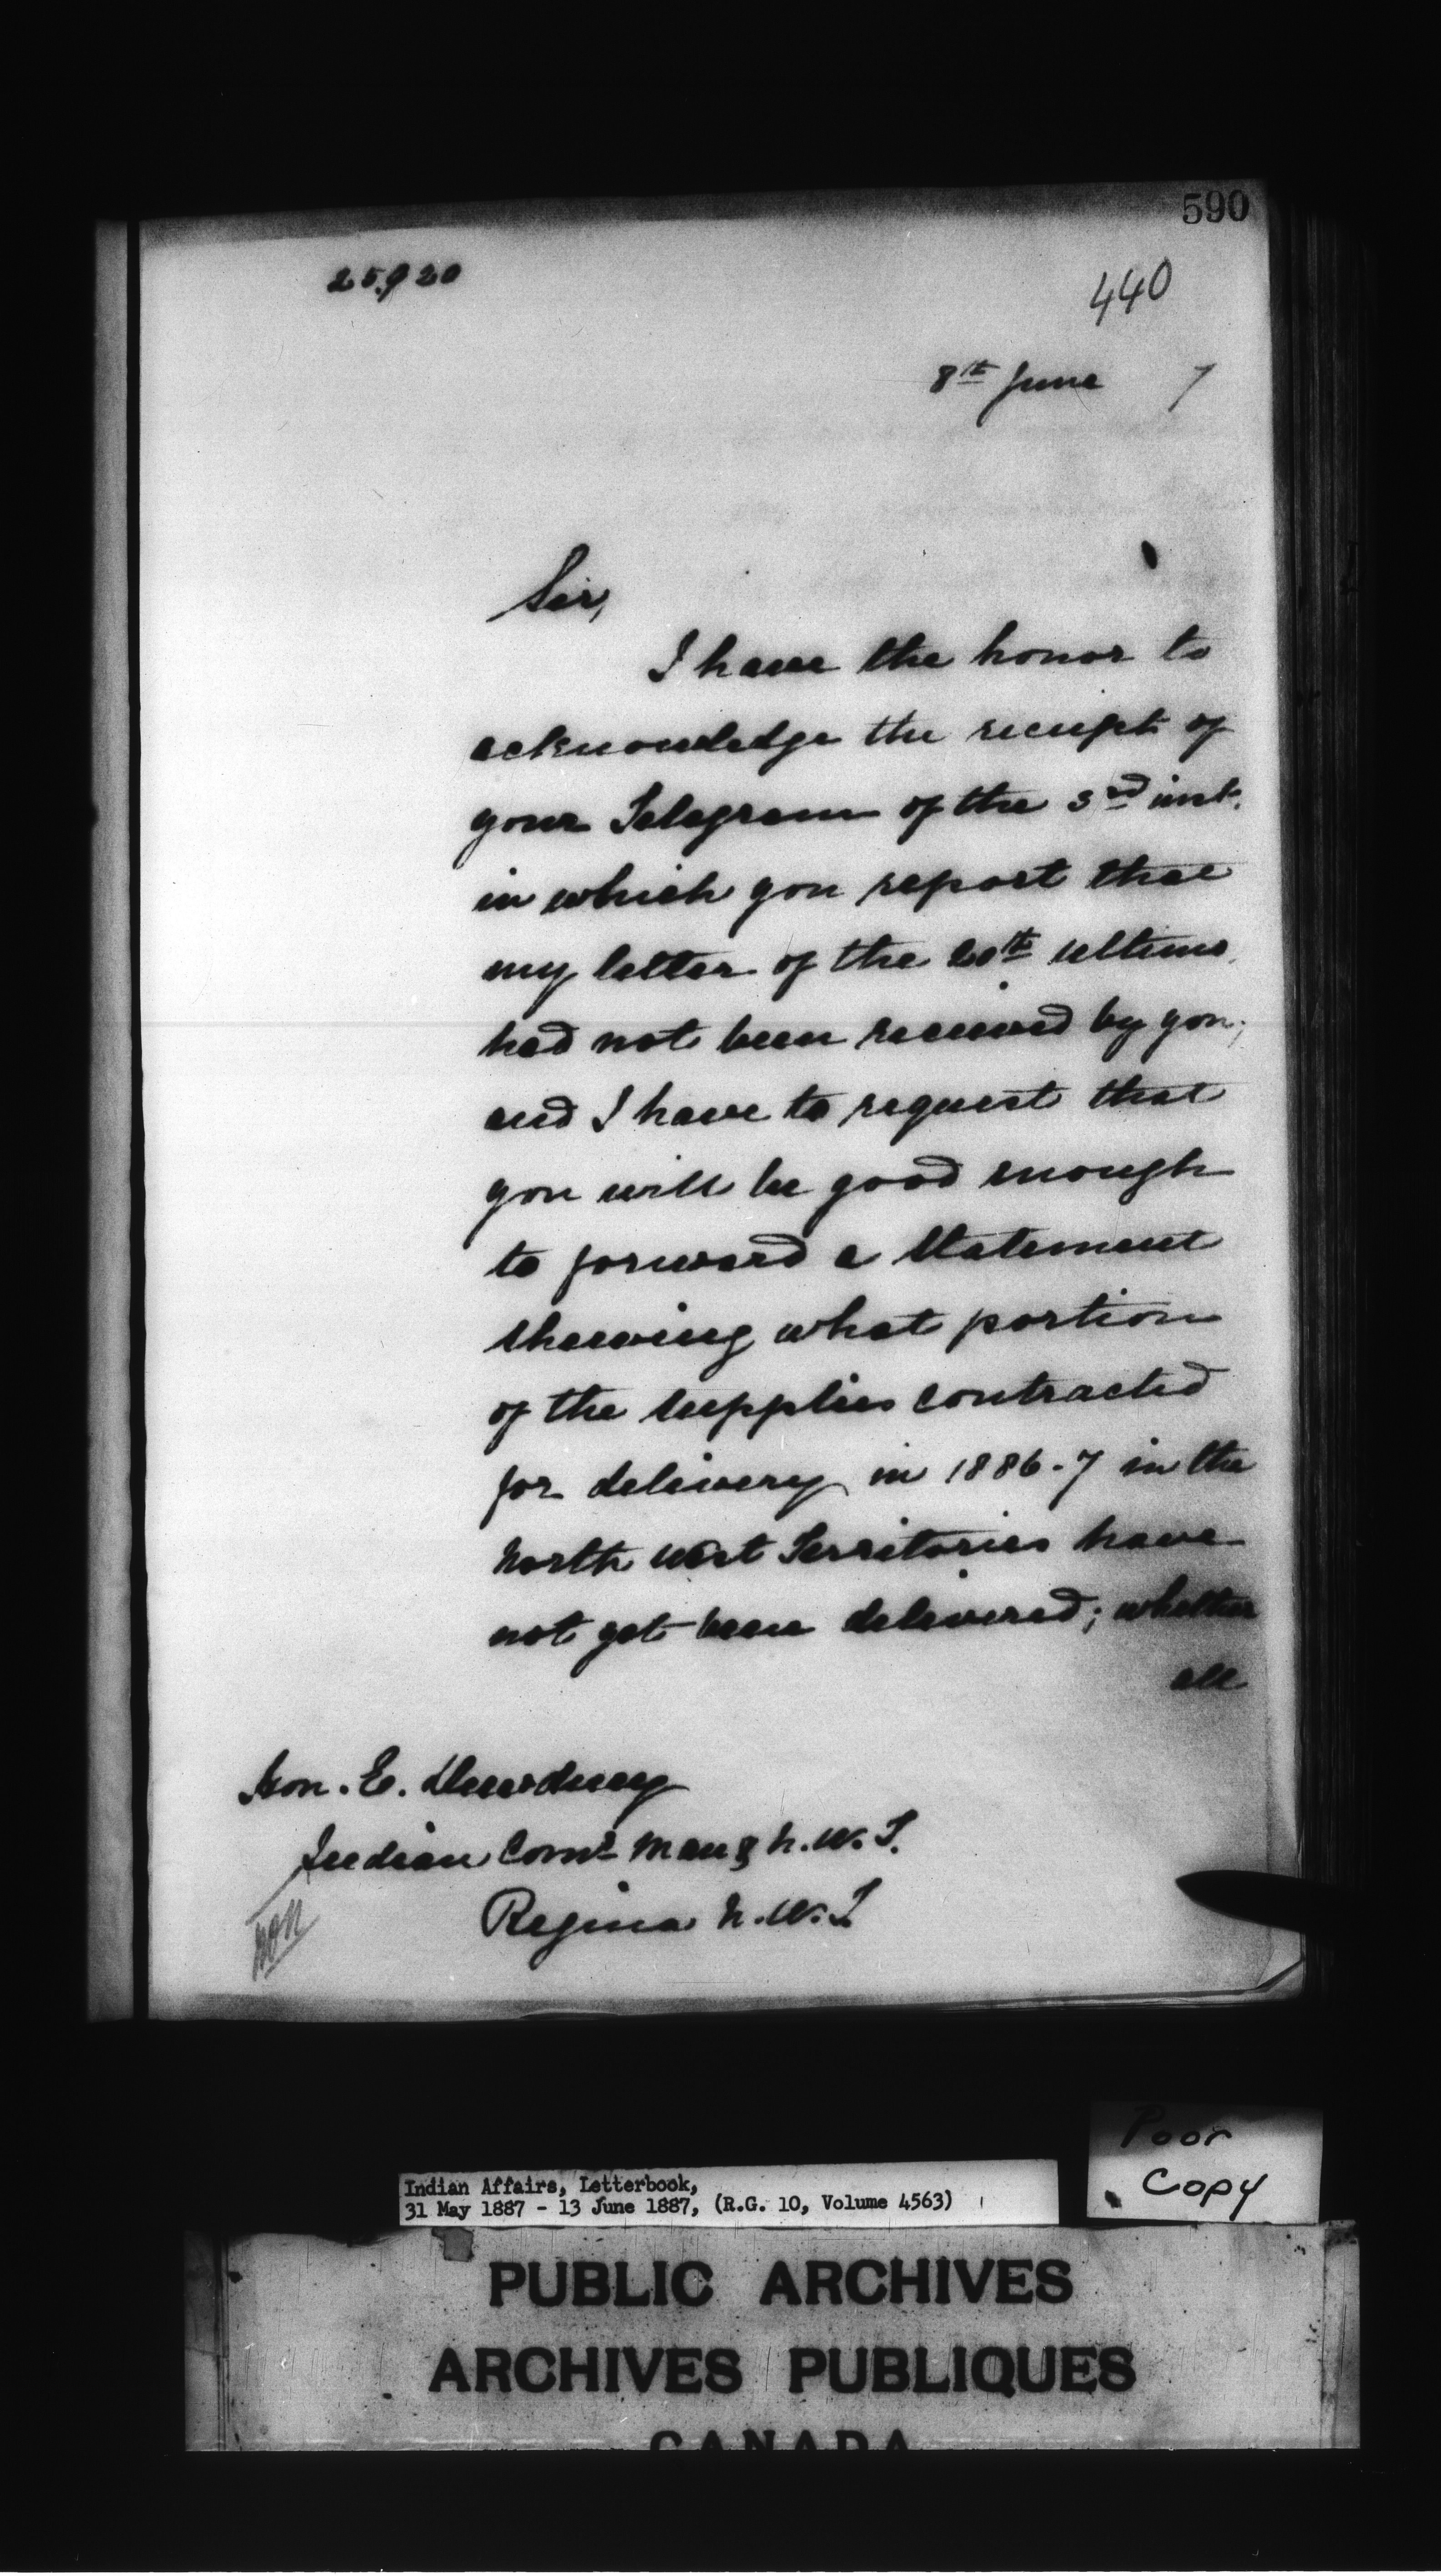 590
25,920
440
8th June 7
Sir,
I have the honor to
acknowledge the receipt of
your Telegram of the 3rd inst.
in which you report that
my letter of the 20th ultimo
had not been received by you;
and I have to request that
you will be good enough
to forward a Statement
shewing what portion
of the supplies contracted
for delivery in 1886-7 in the
North West Territories have
not yet been delivered; whether
all
Hon. E. Dewdney
Indian Comr Man & N.W.T.
Regina N.W.T
Poor
Copy
Indian Affairs, Letterbook,
31 May 1887 - 13 June 1887, (R.G. 10, Volume 4563)
PUBLIC ARCHIVES
ARCHIVES PUBLIQUES
CANADA